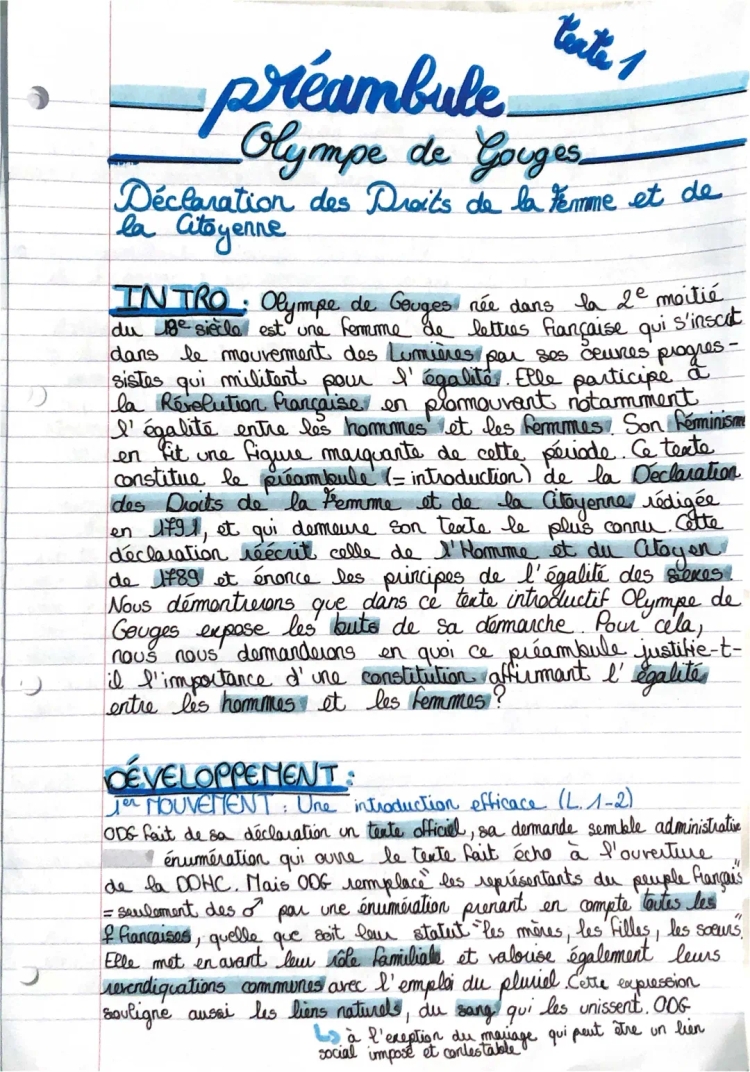 texte 1
préambule
Olympe de Gouges
Déclaration des Droits de la Femme et de
la Citoyenne
INTRO : Olympe de Gouges née dans la 2e moitié
du 18e siècle est une femme de lettres française qui s'inscit
dans le mouvement des Lumières par ses œuvres progres-
sistes qui militent pour l'égalité. Elle participe à
la Révolution française en promouvant notamment
l'égalité entre les hommes et les femmes. Son féminisme
en fit une figure marquante de cette période. Ce texte
constitue le préambule (= introduction) de la Déclaration
des Droits de la Femme et de la Citoyenne rédigée
en 1791, et qui demeure son texte le plus connu. Cette
déclaration réécrit celle de l'Homme et du Citoyen
de 1789 et énonce les principes de l'égalité des sexes.
Nous démontrerons que dans ce texte introductif Olympe de
Gouges expose les buts de sa démarche. Pour cela,
nous nous demanderons en quoi ce préambule justifie-t-
il l'importance d'une constitution affirmant l'égalité
entre les hommes et les femmes ?
DÉVELOPPEMENT :
1er MOUVEMENT : Une introduction efficace (L. 1-2)
ODG fait de sa déclaration un texte officiel, sa demande semble administrative
énumération qui ouvre le texte fait écho à l'ouverture
de la DDHC. Mais ODG remplace "les représentants du peuple français"
= seulement des ♂ par une énumération prenant en compte toutes les
♀ françaises, quelle que soit leur statut "les mères, les filles, les sœurs".
Elle met en avant leur rôle familiale et valorise également leurs
revendications communes avec l'emploi du pluriel. Cette expression
souligne aussi les liens naturels, du sang qui les unissent. ODG
↳ à l'exeption du mariage qui peut être un lien
social imposé et contestable